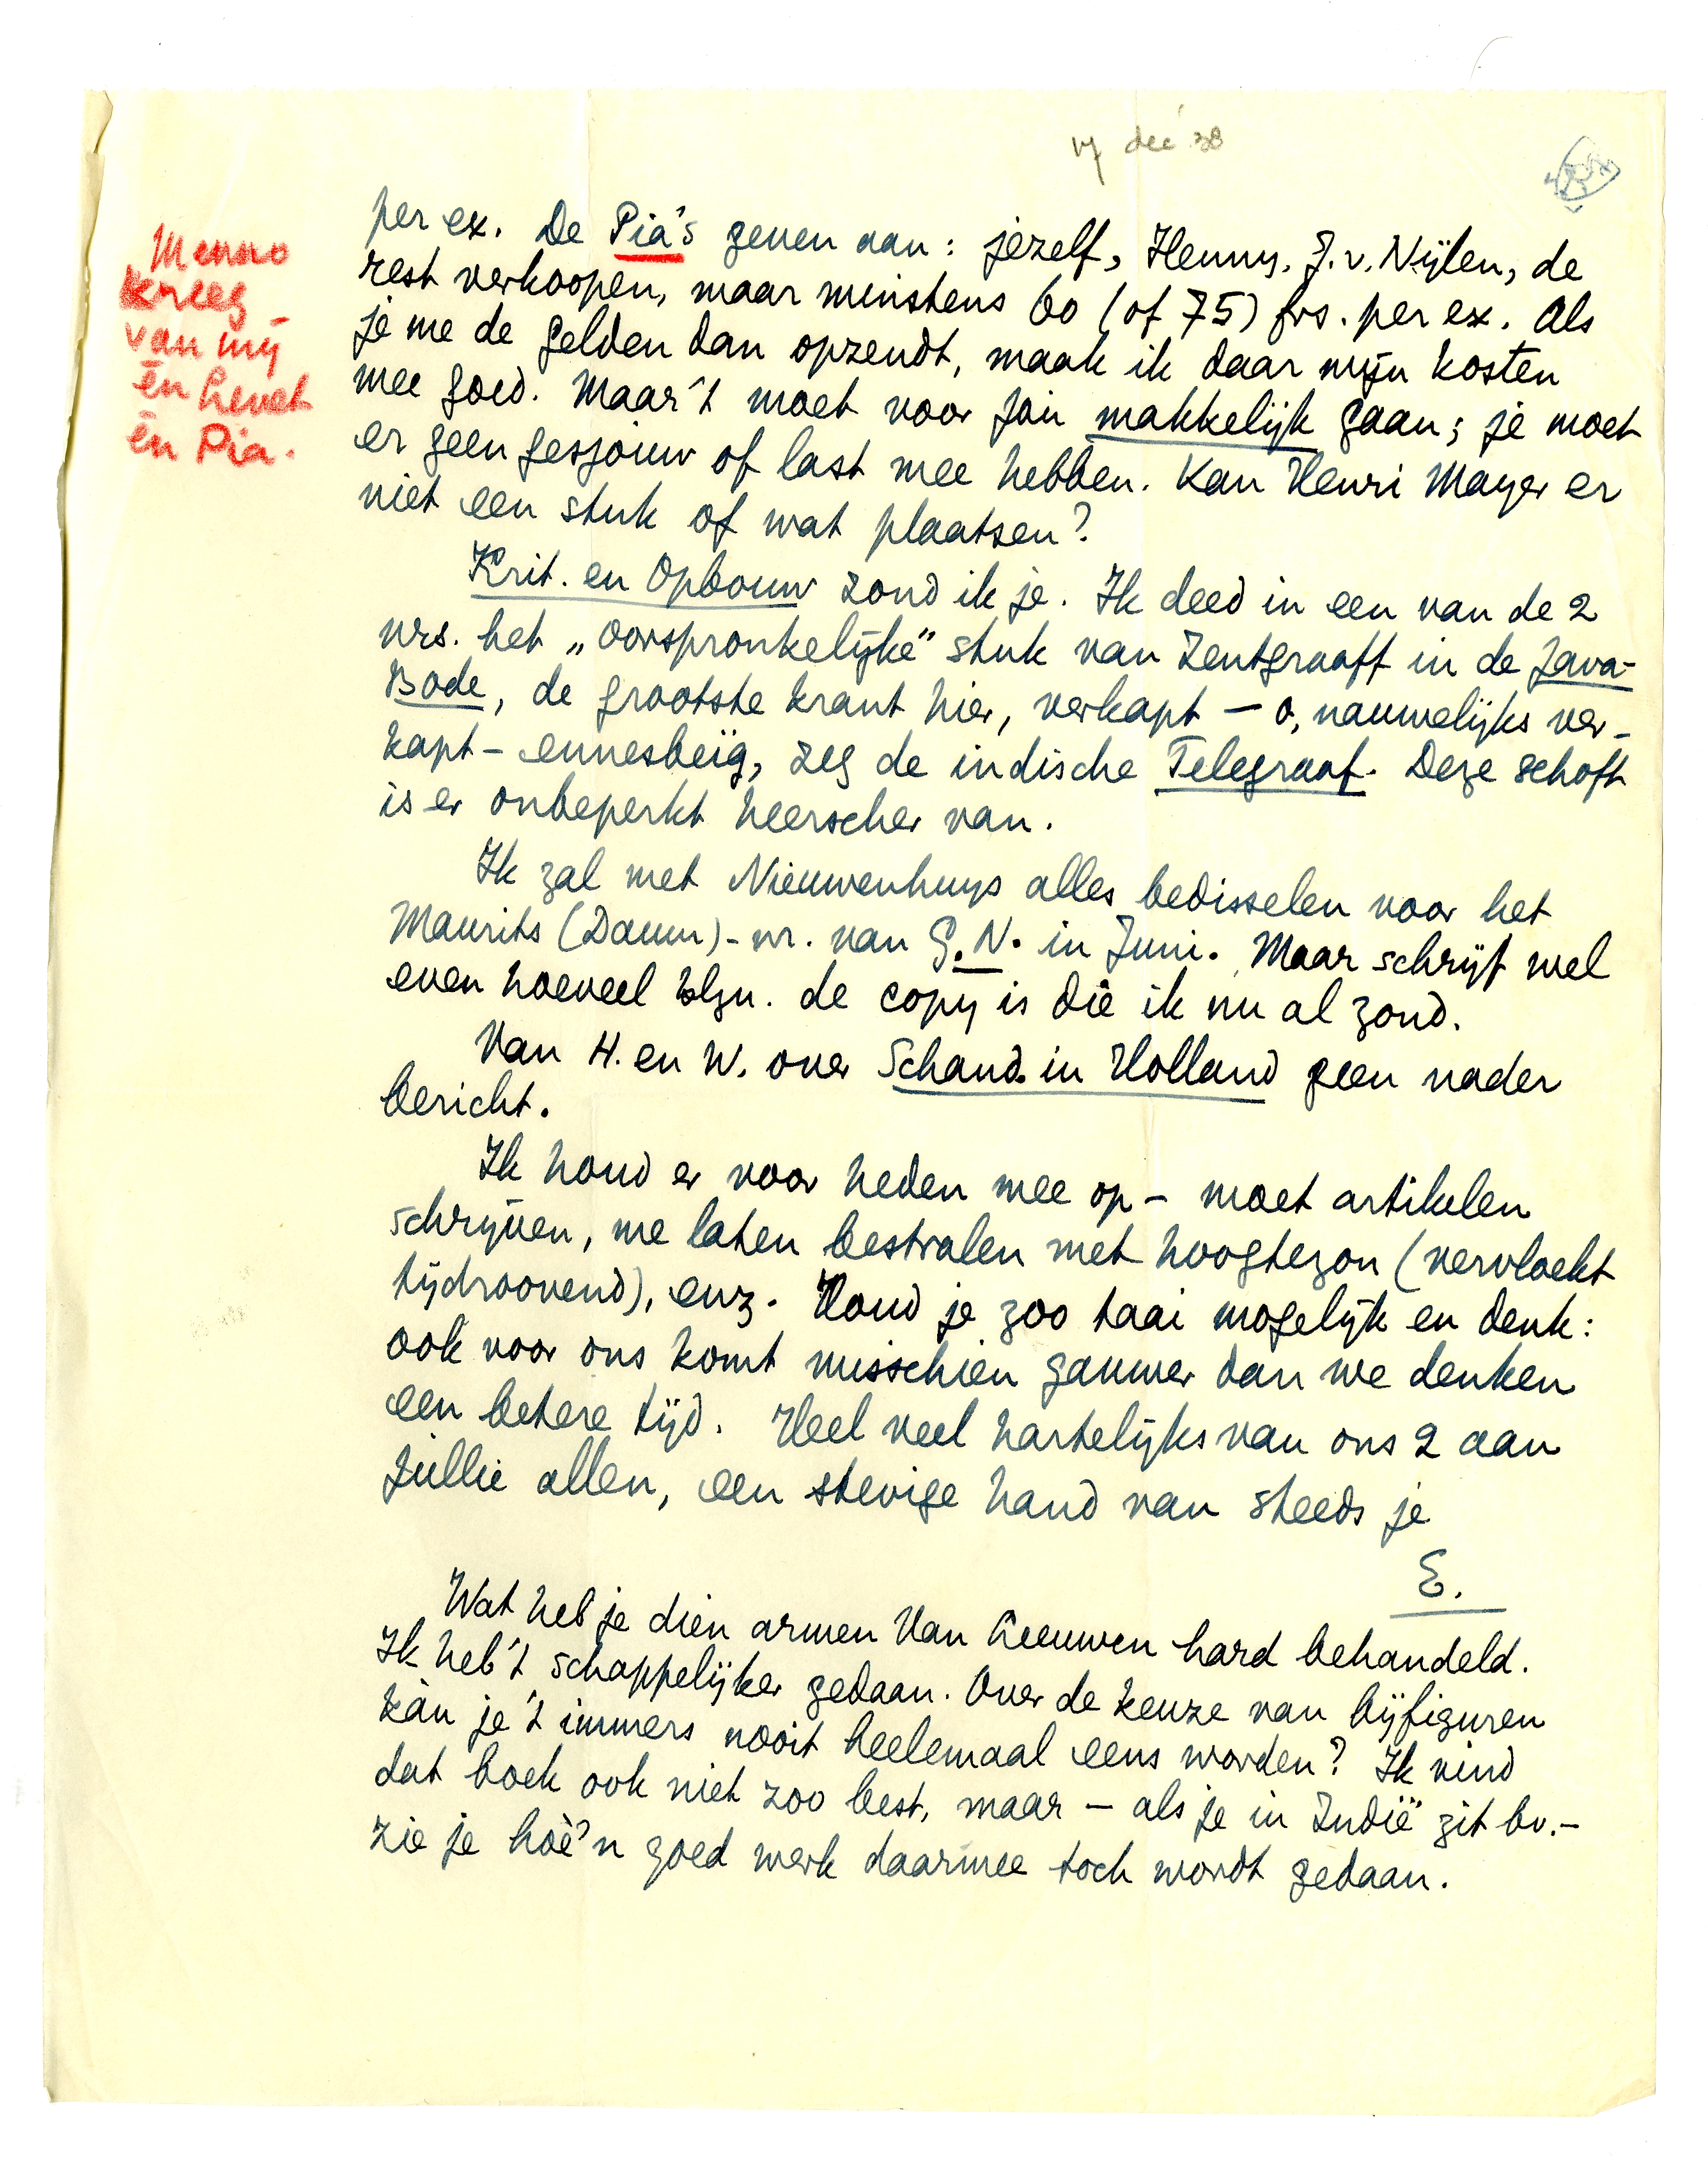 17 dec '38
Menno
kreeg
van mij
èn hevet
èn Pia.
per ex. De Pia's geven aan: jezelf, Henny, J. v. Nijlen, de
rest verkoopen, maar minstens 60 (of 75) frs. per ex. Als
je me de gelden dan opzendt, maak ik daar mijn kosten
mee goed. Maar 't moet voor jou makkelijk gaan; je moet
er geen gesjouw of last mee hebben. Kan Henri Mayer er
niet een stuk of wat plaatsen?
Krit. en Opbouw zond ik je. Ik deed in een van de 2
nrs. het „oorspronkelijke" stuk van Zentgraaff in de Java-
Bode, de grootste krant hier, verkapt — o, nauwelijks ver-
kapt — ennesbeïg, zeg de indische Telegraaf. Deze schoft
is er onbeperkt heerscher van.
Ik zal met Nieuwenhuys alles bedisselen voor het
Maurits (Daum)-nr. van G.N. in Juni. Maar schrijf wel
even hoeveel blzn. de copy is die ik nu al zond.
Van H. en W. over Schand. in Holland geen nader
bericht.
Ik houd er voor heden mee op — moet artikelen
schrijven, me laten bestralen met hoogtezon (vervloekt
tijdroovend), enz. Houd je zoo taai mogelijk en denk:
ook voor ons komt misschien gauwer dan we denken
een betere tijd. Heel veel hartelijks van ons 2 aan
jullie allen, een stevige hand van steeds je
E.
Wat heb je dien armen Van Leeuwen hard behandeld.
Ik heb 't schappelijker gedaan. Over de keuze van bijfiguren
kàn je 't immers nooit heelemaal eens worden? Ik vind
dat boek ook niet zoo best, maar — als je in Indië zit bv. —
zie je hoè'n goed werk daarmee toch wordt gedaan.